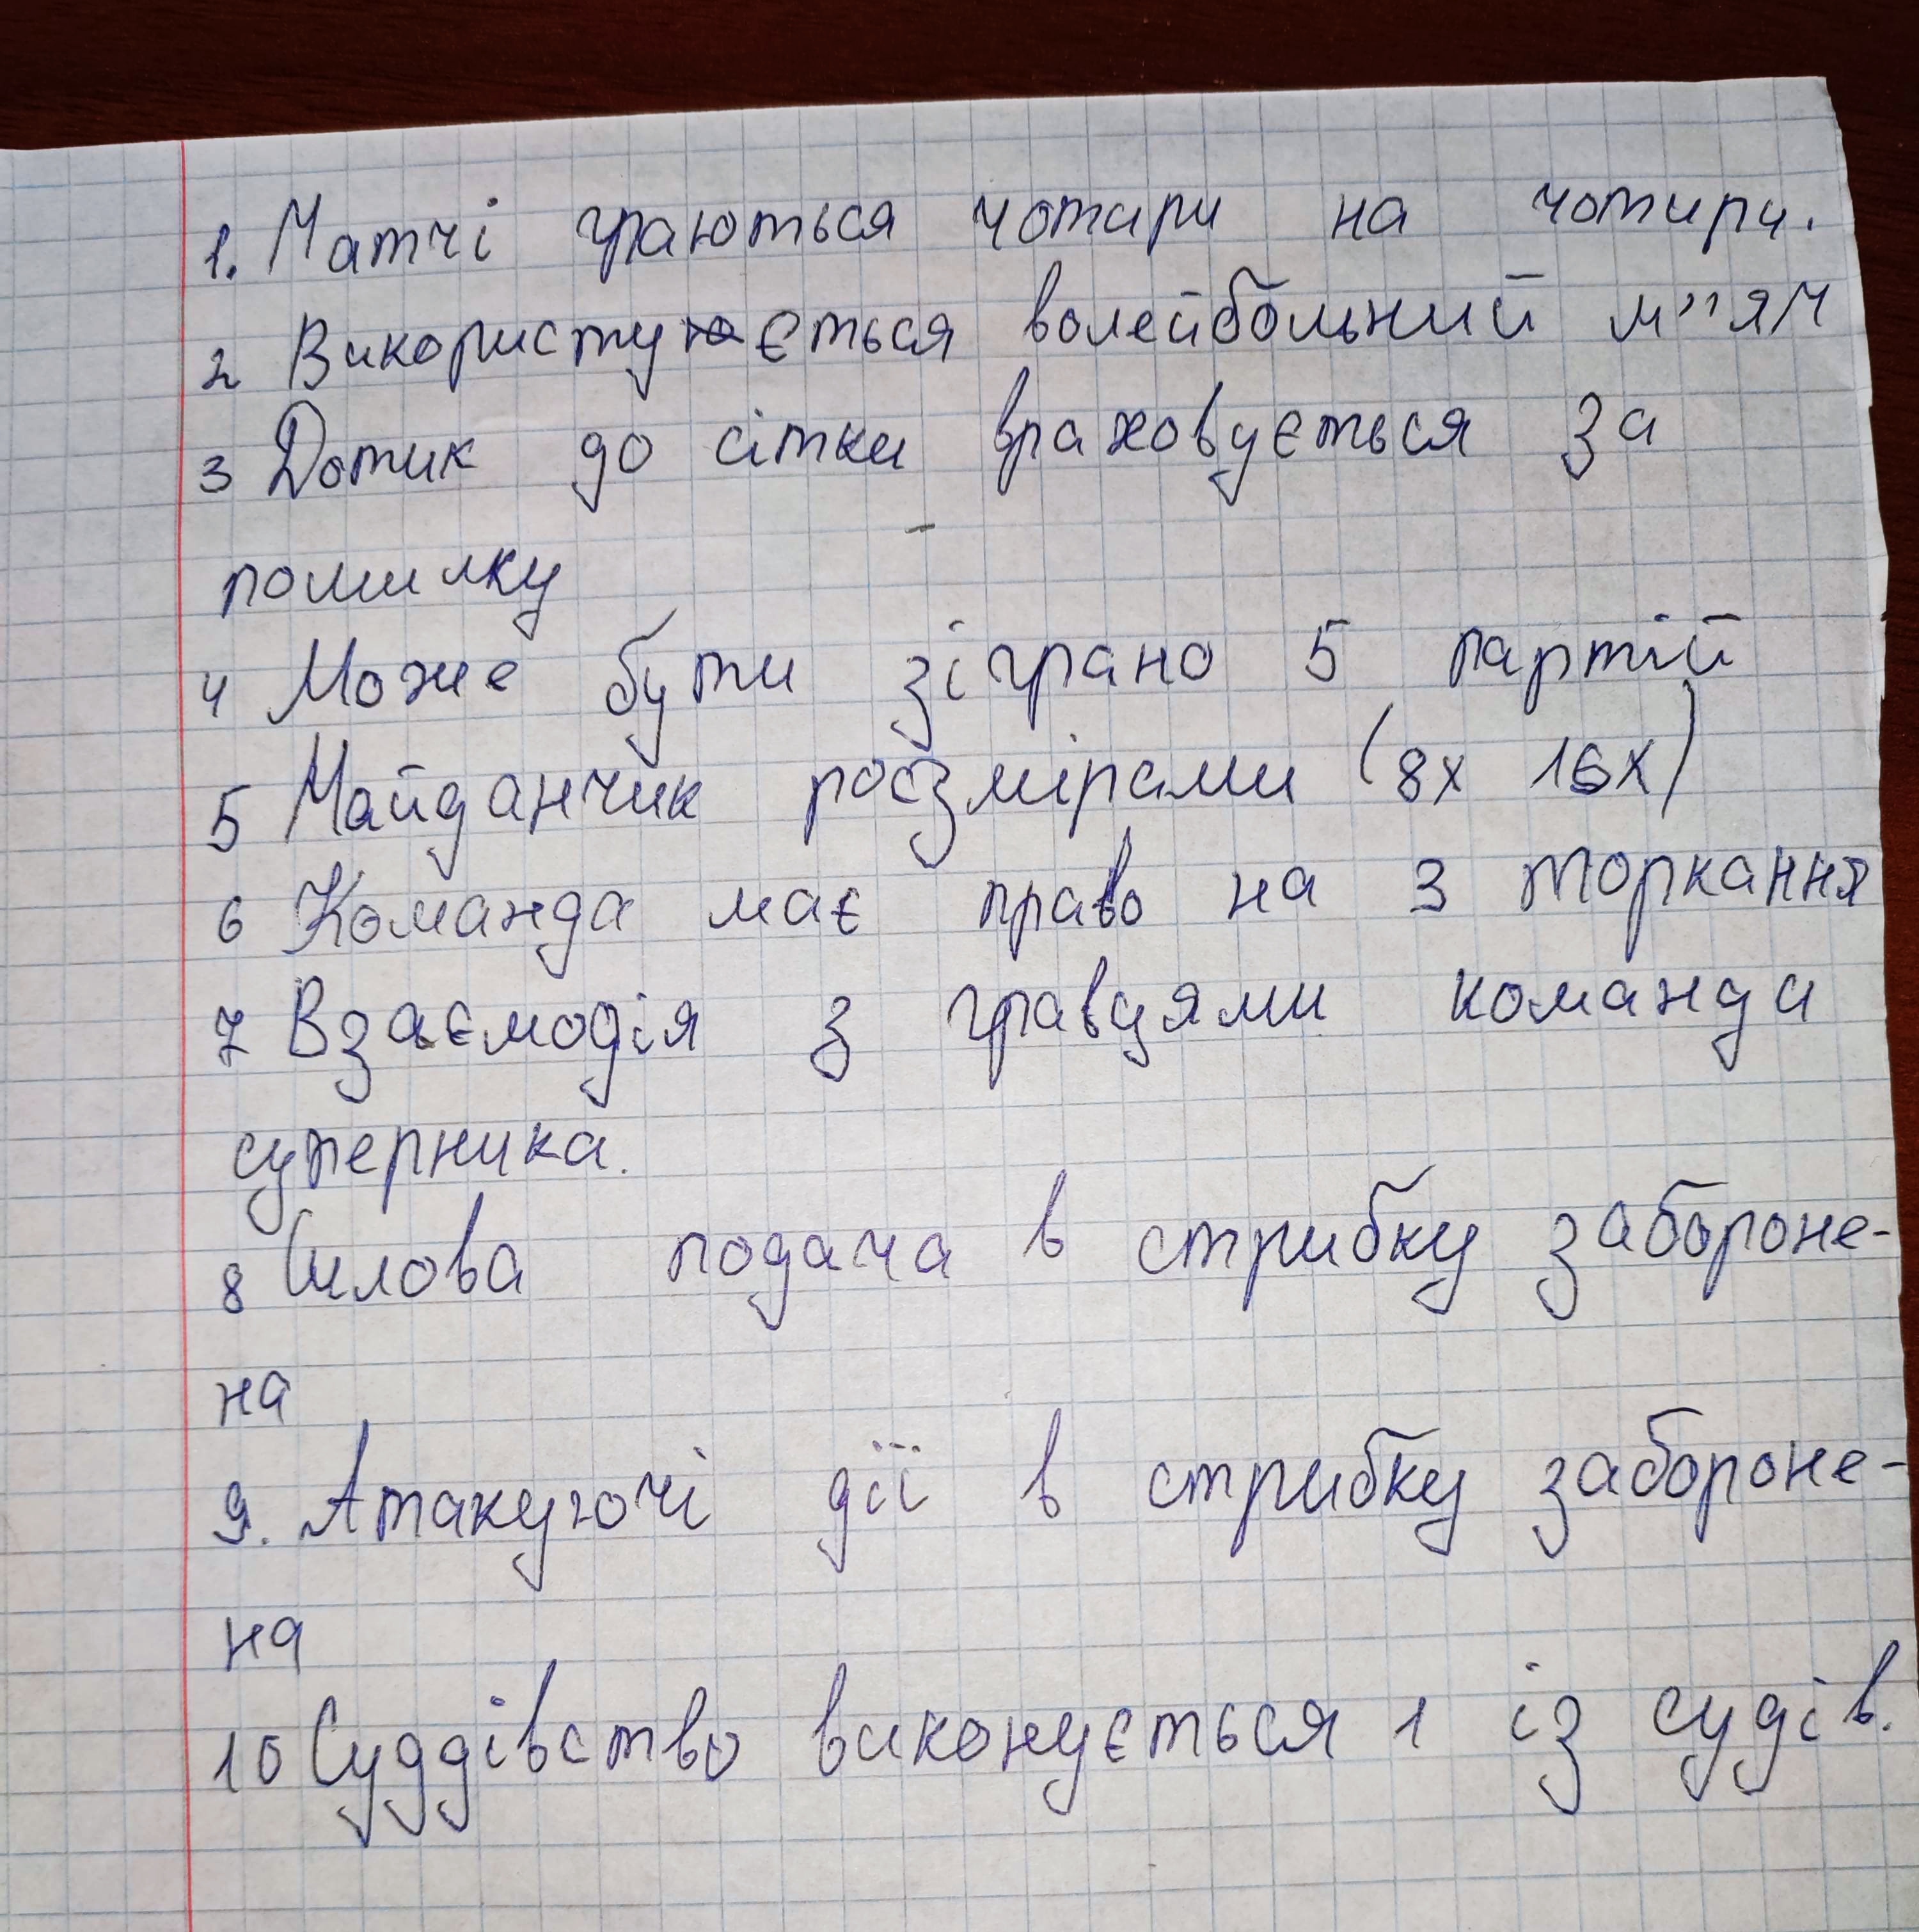 1. Матчі граються чотари на чотири.
2 Використується волейбольний м"яч
3 Дотик до сітки враховується за
помилку
4 Може бути зіграно 5 партій
5 Майданчик росзмірами (8х 16х)
6 Команда має право на 3 торкання
7 Взаємодія з гравцями команда
суперника.
8 Силова подача в стрибку забороне-
на
9. Атакуючі дії в стрибку забороне-
на
10 Суддівство виконується 1 із судів.